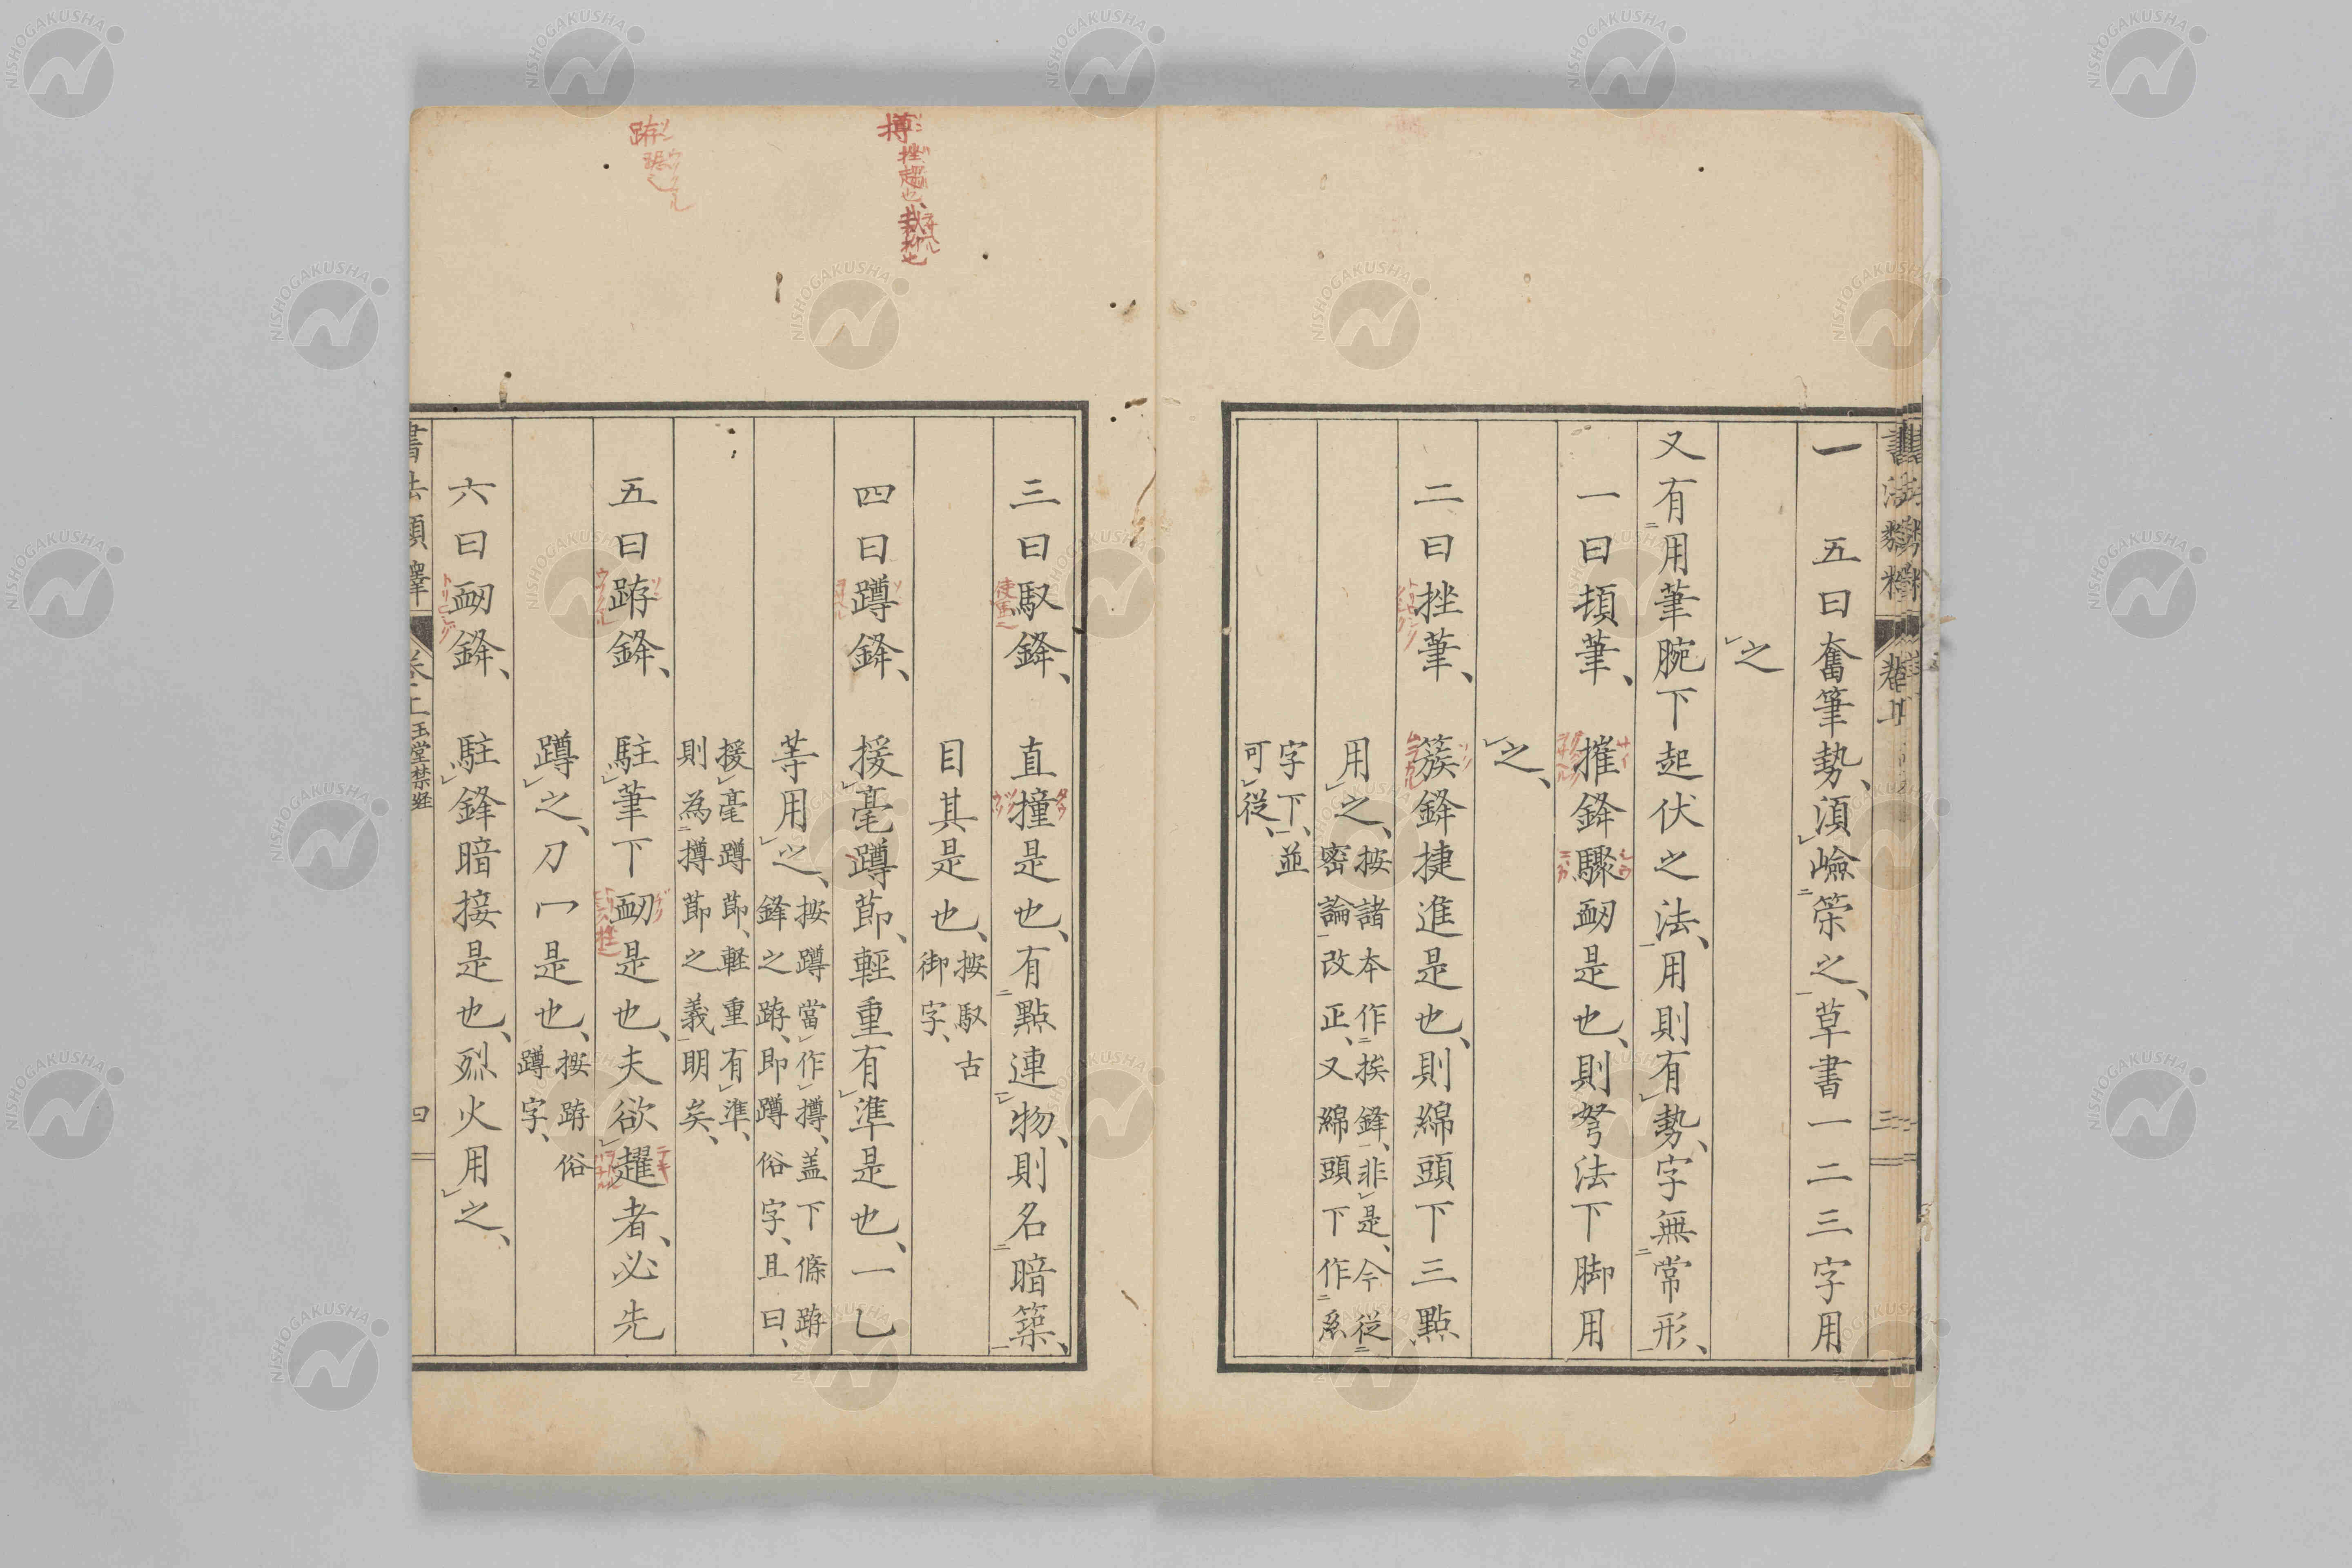 一　五曰奮筆勢、湏嶮策之、草書一二三字用
之
又有用筆腕下起伏之法、用則有勢、字無常形、
一曰頓筆、摧鋒驟衂是也、則努法下脚用
之、
二曰挫筆、簇鋒捷進是也、則綿頭下三點
用之、按諸本作挨鋒、非是、今從
密論改正、又綿頭下作系
字下、並
可從、
三曰馭鋒、直撞是也、有點連物、則名暗築、
目其是也、按馭古
御字、
四曰蹲鋒、援毫蹲節、輕重有準是也、一乚
等用之、按蹲當作撙、盖下條䟴
鋒之䟴、即蹲俗字、且曰、
援毫蹲節、軽重有準、
則為撙節之義明矣、
五曰䟴鋒、駐筆下衂是也、夫欲趯者、必先
蹲之、刀冖是也、按䟴俗
蹲字、
六曰衂鋒、駐鋒暗接是也、烈火用之、
玉堂禁経
四
撙
挫趨也、
裁抑也
䟴
踞也
NISHOGAKUSHA